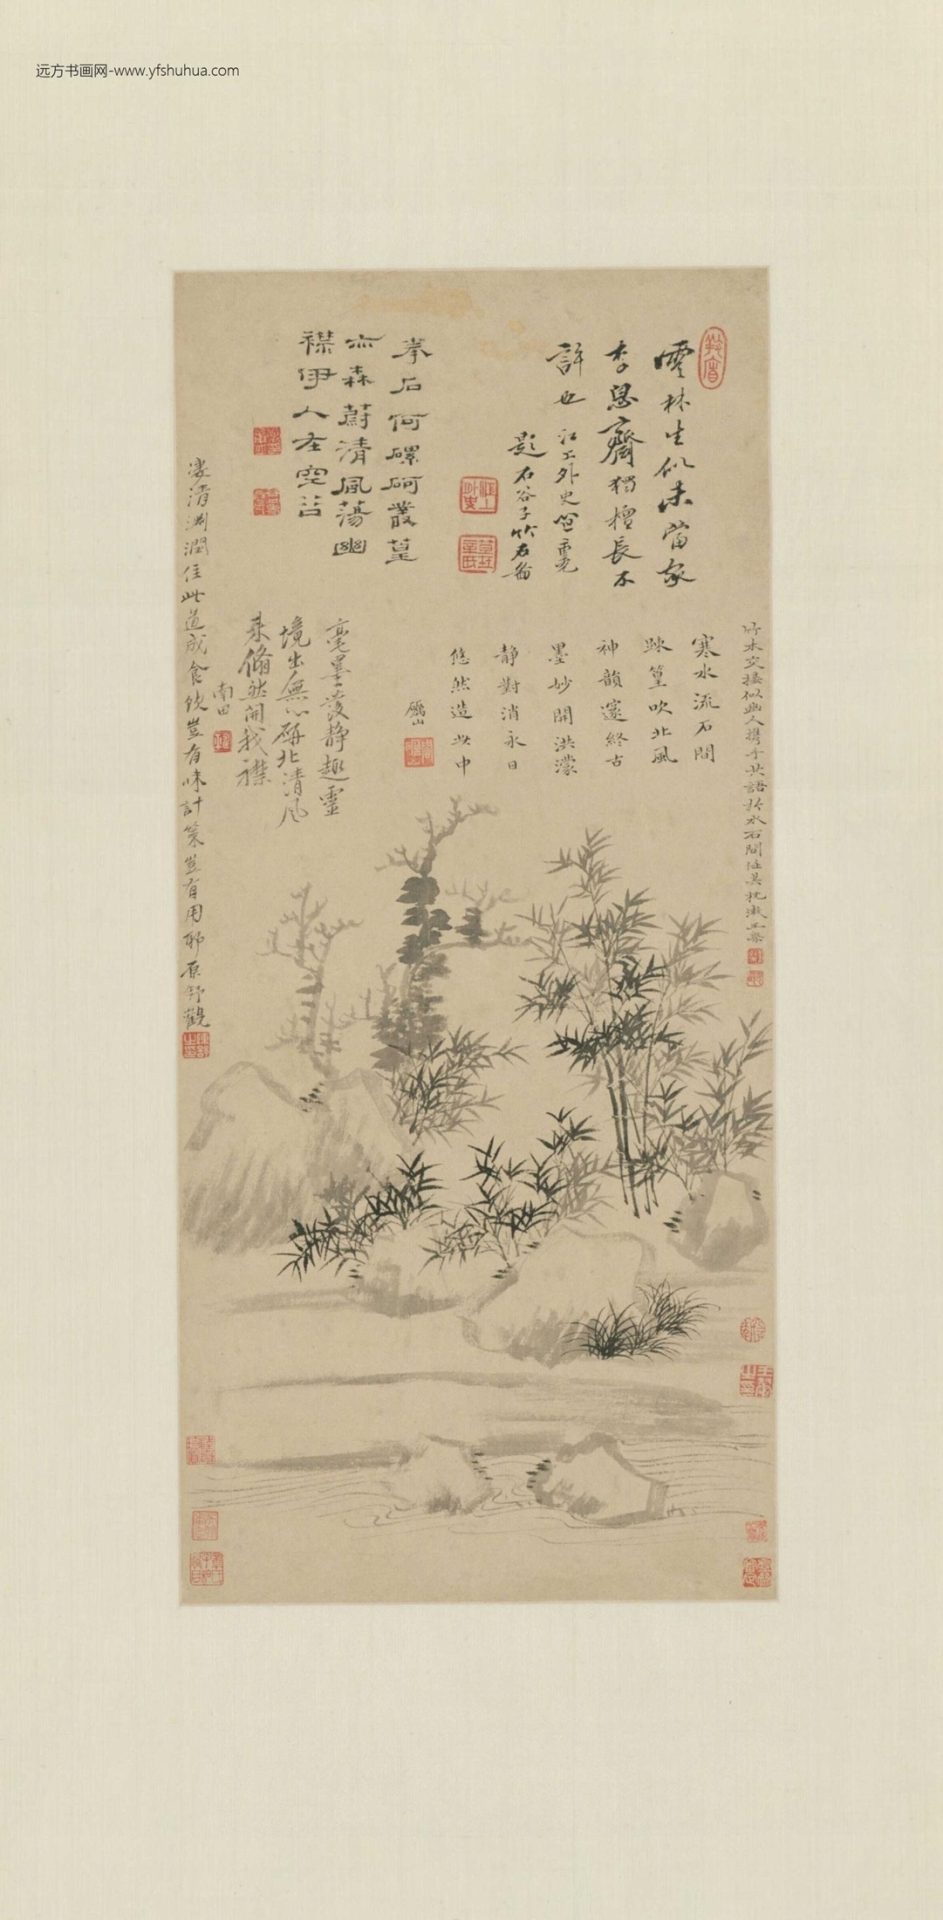 远方书画网-www.yfshuhua.com
雲林生似未當家
李息齋獨檀長不
許也 江上外史笪重光
題石谷子竹石
拳石何磥砢叢篁
亦森蔚清風蕩幽
襟伊人在空谷
寒水流石間
疎篁吹北風
神韻邃終古
墨妙開洪濛
靜對消永日
悠然造此中
毫墨發靜趣靈
境出無心研北清風
來翛然開我襟
南田
竹木交接似幽人攜手共語於水石間
淒清淵潤住此道成食飲豈有味計策豈有用耶